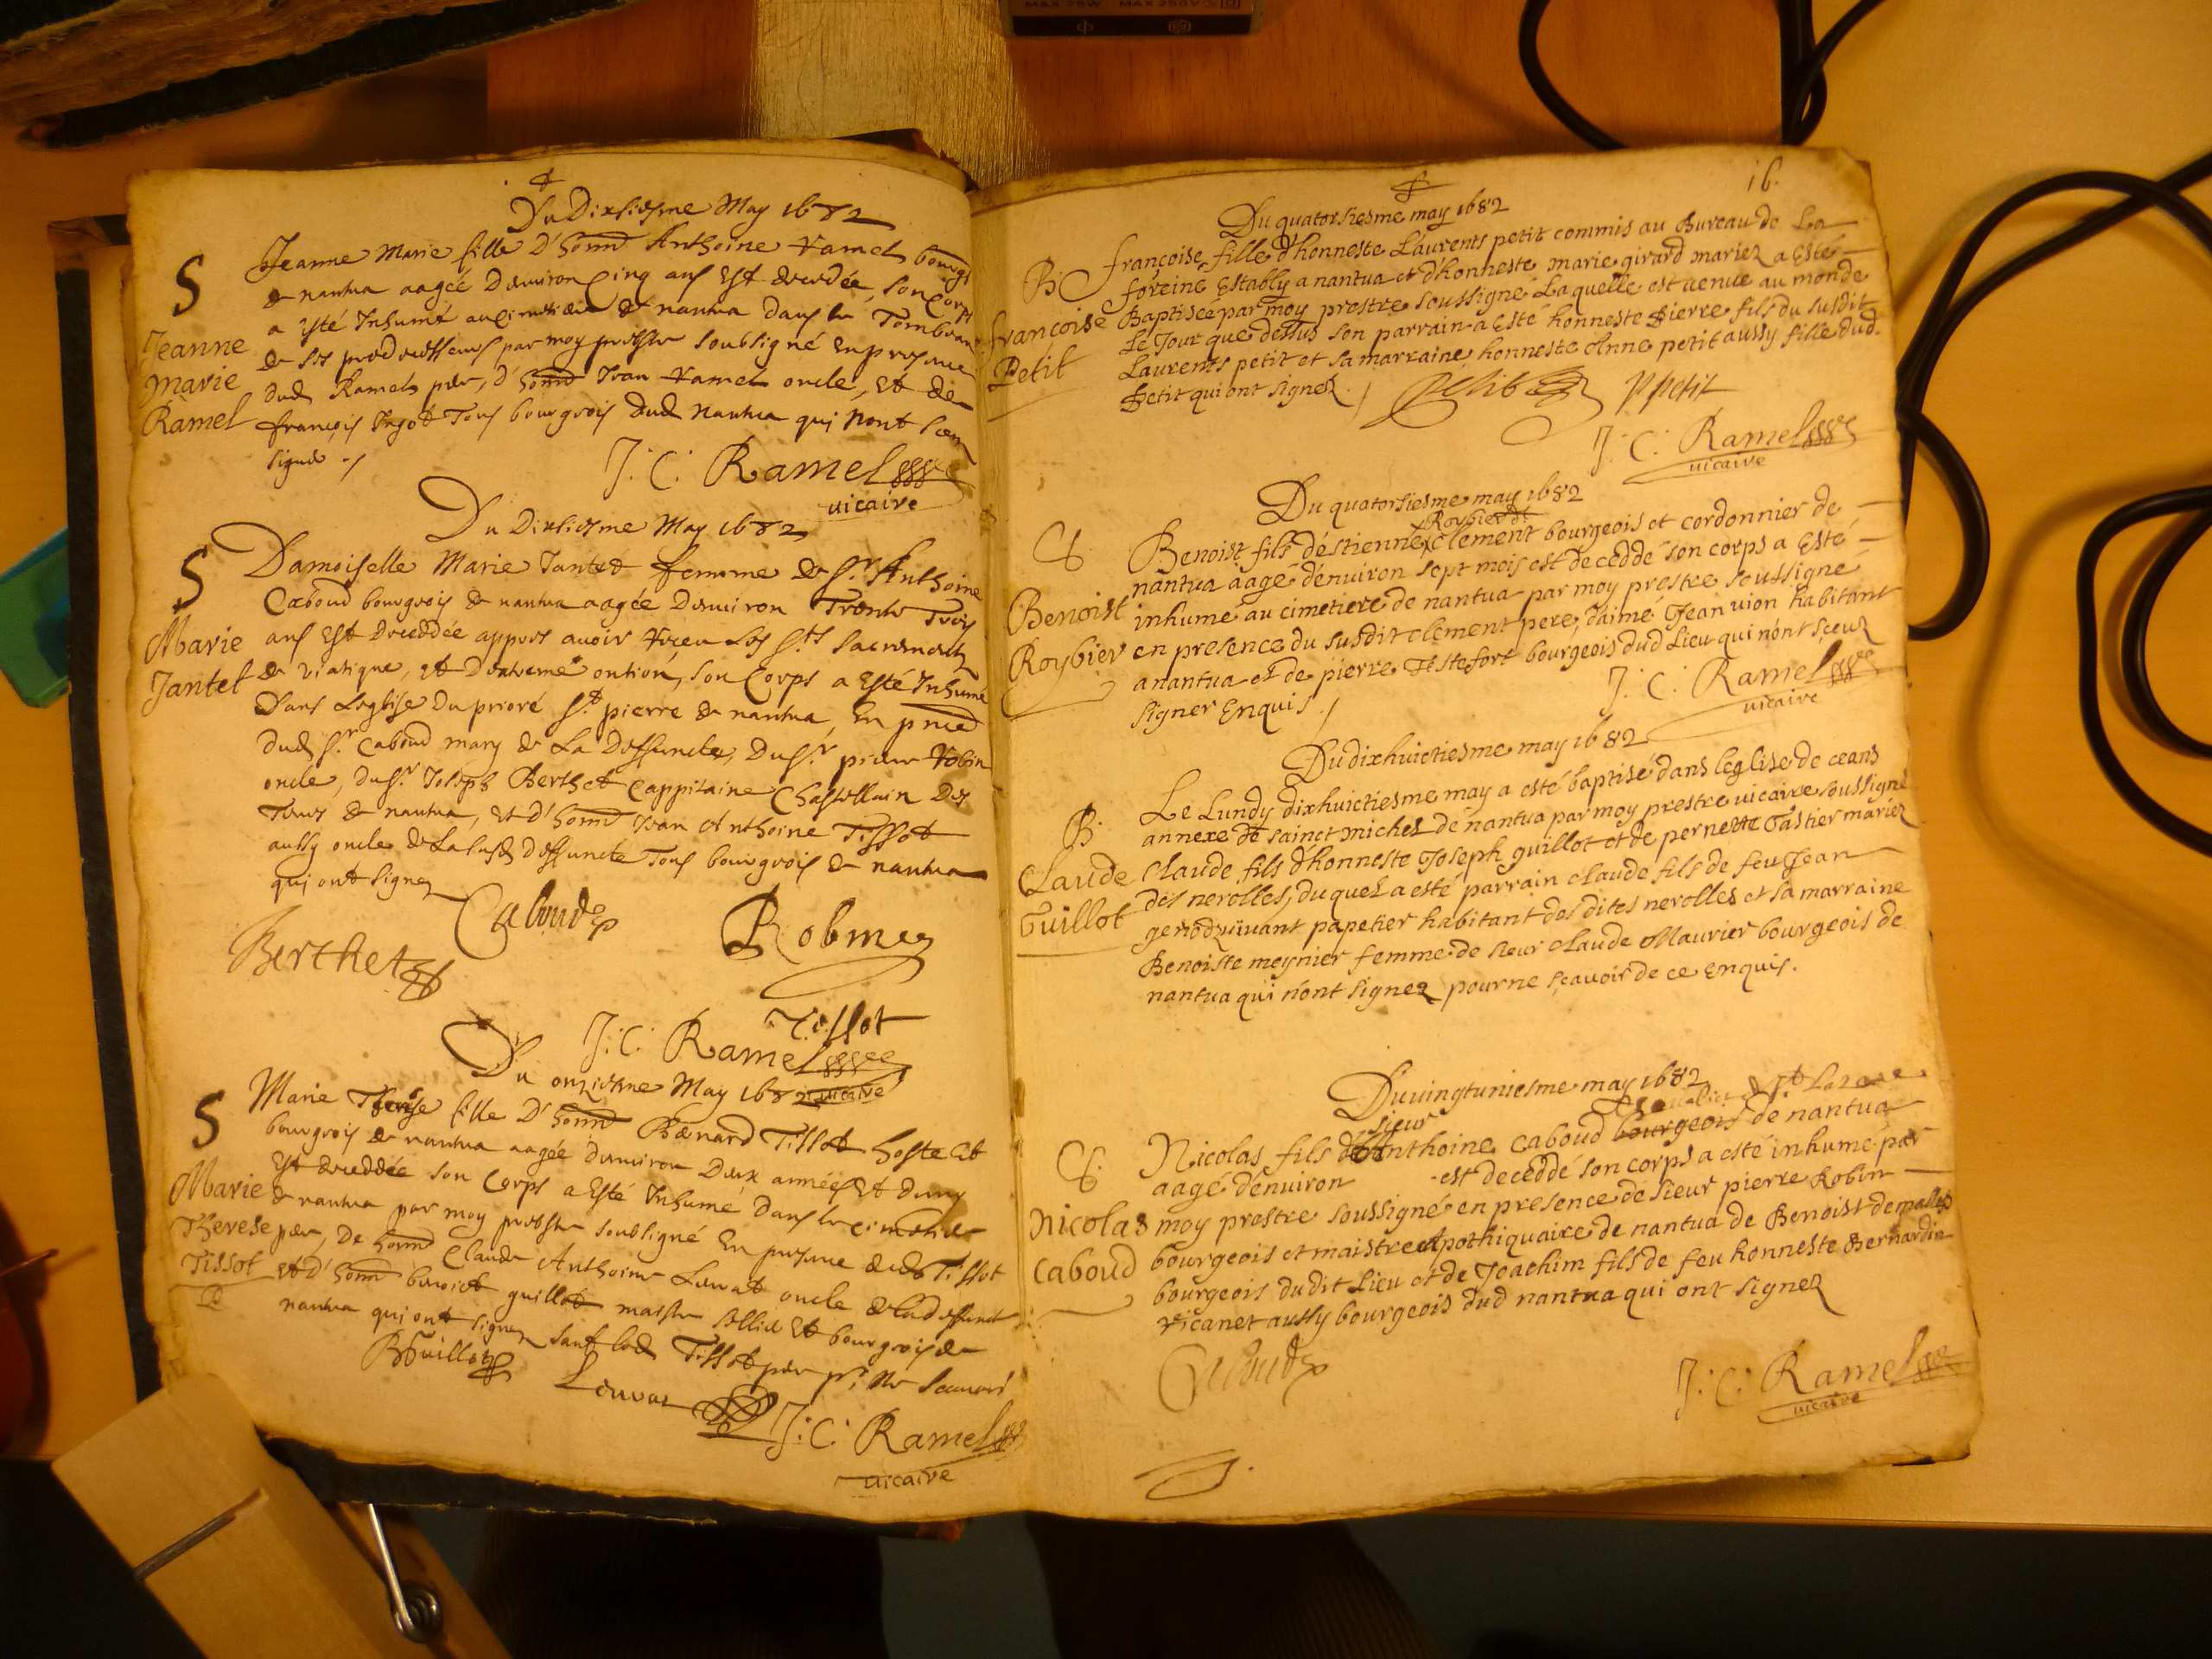 MAX 25W MAX 250V
Du Dixiesme May 1682
S
Jeanne Marie fille D'honn^e Anthoine Ramel bourgs
de nantua aagée Denviron Cinq ans Est decedée, son Corps
a esté Inhumé au Cimetiere de nantua dans le Tombeau
de ses predecesseurs par moy prebstre soubsigné En presence
dud Ramel pere, d'honn^e Jean Ramel oncle, Et de
françois Tous bourgeois dud nantua qui nont sceu
signer ./
Jeanne
Marie
Ramel
J: C: Ramel
vicaire
Du Dixiesme May 1682
S
Damoiselle Marie Jantet femme de S^r Anthoine
Caboud bourgeois de nantua aagée Denviron Trente Trois
ans Est Deceddée appres avoir Receu Les S^ts Sacrements
de viatique, et D'extreme ontion, son Corps a Esté Inhumé
Dans Leglise Du prioré S^t pierre de nantua, En pnce
dud S^r Caboud mary de La Deffuncte, Du S^r pierre Robin
oncle, du S^r Joseph Berthet Cappitaine Chastellain Des
Terres de nantua, Et d'honn^e Jean Anthoine Tissot
aussy oncle de La susd deffuncte Tous bourgeois de nantua
qui ont signez
Marie
Jantet
Caboud
Robin
Berthet
Tissot
J: C: Ramel
vicaire
Du onziesme May 1682
S
Marie Therese fille D'honn^e Bernard Tissot hoste Et
bourgeois de nantua aagée denviron Deux années Et demy
Est deceddée son Corps a Esté Inhumé Dans le cimetiere
de nantua par moy prebstre soubsigné En presence dud Tissot
pere, De honn^e Claude Anthoine Levrat oncle de La deffuncte
Et d'honn^e benoict guillot maistre sellier Et bourgeois de
nantua qui ont signez sauf led Tissot pere pr ne scavoir
Marie
Therese
Tissot
BGuillot
Levrat
J: C: Ramel
vicaire
16.
Du quatorsiesme may 1682
B
françoise fille d'honneste Laurents petit commis au Bureau de La
foreine Estably a nantua et d'honneste marie girard mariez a Esté
Baptisée par moy prestre soussigné Laquelle est venue au monde
Le Jour que dessus son parrain a Esté honneste Pierre fils du susdit
Laurents petit et sa marraine honneste Anne petit aussy fille dud.
Petit qui ont signez ./
francoise
Petit
Petit
Ppetit
J: C: Ramel
vicaire
Du quatorsiesme may 1682
Roybier dt
Benoist fils d'estienne clement bourgeois et cordonnier de
nantua aagé d'environ sept mois est decedde son corps a Esté
inhumé au cimetiere de nantua par moy prestre soussigné
en presence du susdit clement pere, d'aimé Jean vion habitant
a nantua et de pierre Testefort bourgeois dud Lieu qui n'ont sceuz
signer Enquis ./
Benoist
Roybier
J: C: Ramel
vicaire
Du dixhuictiesme may 1682
B.
Le Lundy dixhuictiesme may a esté baptisé dans leglise de ceans
annexe de sainct michel de nantua par moy prestre vicaire soussigné
claude fils d'honneste Joseph guillot et de pernette Tastier mariez
des nerolles, duquel a esté parrain claude fils de feu Jean
papetier habitant des dites nerolles et sa marraine
Benoiste meynier femme de sieur claude Maurier bourgeois de
nantua qui n'ont signez pour ne sçavoir de ce enquis.
Claude
Guillot
Du vingtuniesme may 1682
sieur Chevalier de S^t Lazare
Nicolas fils de Anthoine caboud bourgeois de nantua
aagé denviron est deceddé son corps a esté inhumé par
moy prestre soussigné en presence de sieur pierre Robin
bourgeois et maistre Apothiquaire de nantua de Benoist demallet
bourgeois dudit Lieu et de Joachim fils de feu honneste Bernardin
vicanet aussy bourgeois dud nantua qui ont signez
Nicolas
caboud
Caboud
J: C: Ramel
vicaire